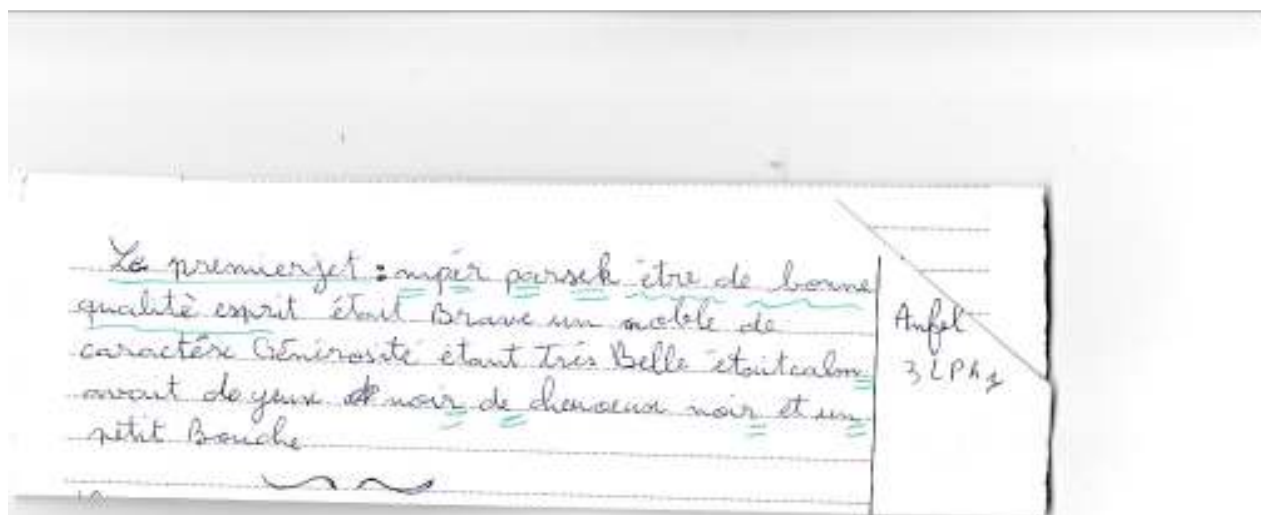 Le premier jet : mpér parsek être de bonne
qualité esprit était Brave un noble de
caractére Génirosité étant Trés Belle étaitcalm
avait de yeux noir de cheveux noir et un
petit Bouche
Anfel
3 LPh1